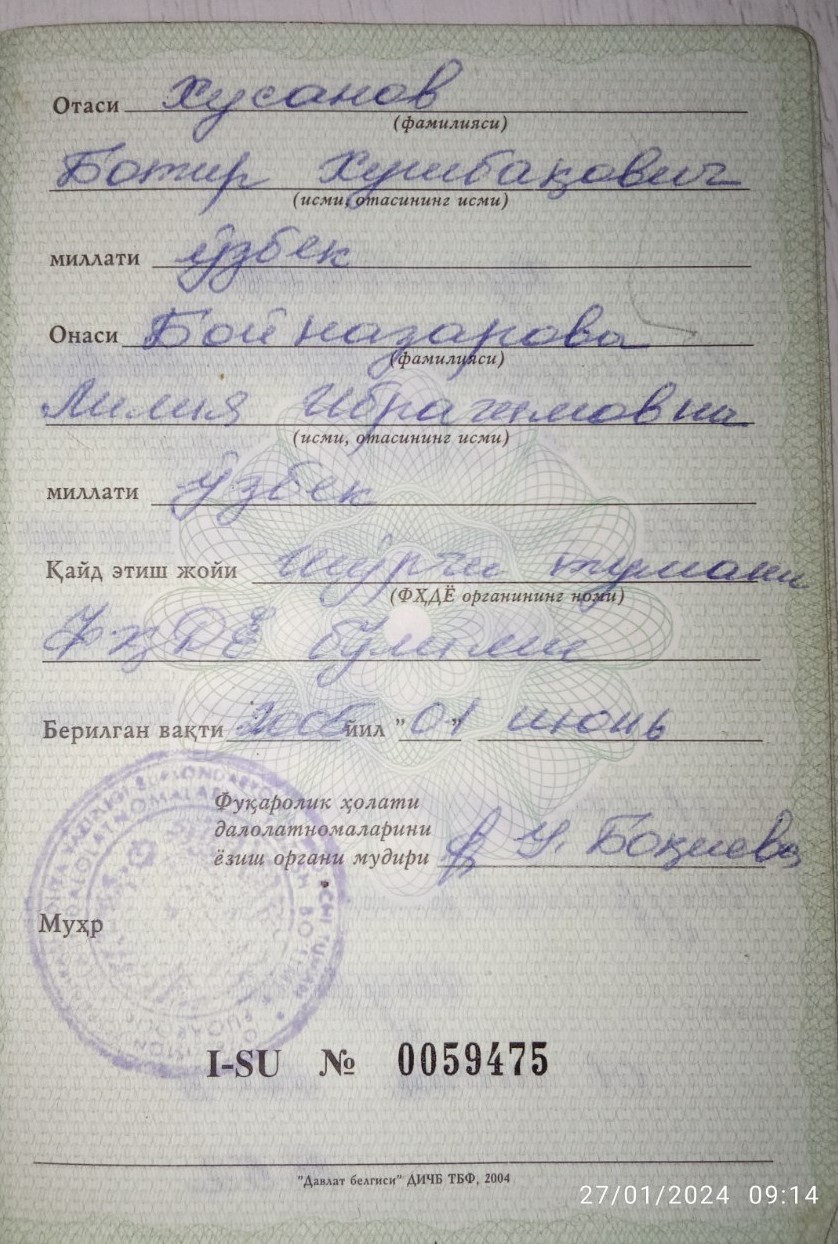 Отаси Хусанов
(фамилияси)
Ботир Хушбақович
(исми, отасининг исми)
миллати ўзбек
Онаси Бойназарова
(фамилияси)
Лилия Ибрагимовна
(исми, отасининг исми)
миллати ўзбек
Қайд этиш жойи Шўрчи тумани
(ФҲДЁ органининг номи)
ФҲДЁ бўлими
Берилган вақти йил "01" июнь
Фуқаролик ҳолати
далолатномаларини
ёзиш органи мудири У. Боқиева
Муҳр
I-SU № 0059475
"Давлат белгиси" ДИЧБ ТБФ, 2004
27/01/2024 09:14